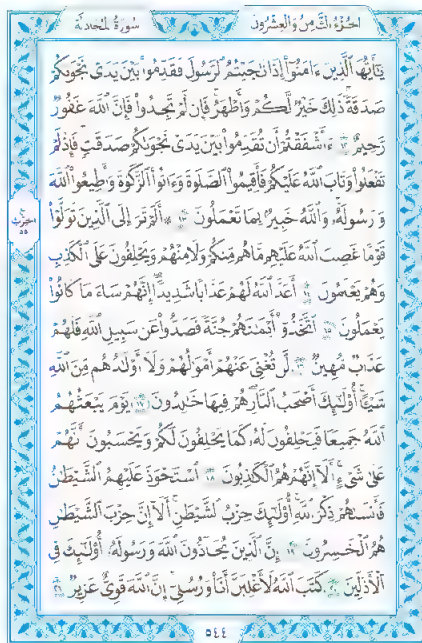 الجزء الثامن والعشرون
سورة المجادلة
يَٰٓأَيُّهَا ٱلَّذِينَ ءَامَنُوٓاْ إِذَا نَٰجَيْتُمُ ٱلرَّسُولَ فَقَدِّمُواْ بَيْنَ يَدَىْ نَجْوَىٰكُمْ
صَدَقَةً ذَٰلِكَ خَيْرٌ لَّكُمْ وَأَطْهَرُ فَإِن لَّمْ تَجِدُواْ فَإِنَّ ٱللَّهَ غَفُورٌ
رَّحِيمٌ ١٢ ءَأَشْفَقْتُمْ أَن تُقَدِّمُواْ بَيْنَ يَدَىْ نَجْوَىٰكُمْ صَدَقَٰتٍ فَإِذْ لَمْ
تَفْعَلُواْ وَتَابَ ٱللَّهُ عَلَيْكُمْ فَأَقِيمُواْ ٱلصَّلَوٰةَ وَءَاتُواْ ٱلزَّكَوٰةَ وَأَطِيعُواْ ٱللَّهَ
وَرَسُولَهُۥ وَٱللَّهُ خَبِيرٌۢ بِمَا تَعْمَلُونَ ١٣ ۞ أَلَمْ تَرَ إِلَى ٱلَّذِينَ تَوَلَّوْاْ
قَوْمًا غَضِبَ ٱللَّهُ عَلَيْهِم مَّا هُم مِّنكُمْ وَلَا مِنْهُمْ وَيَحْلِفُونَ عَلَى ٱلْكَذِبِ
وَهُمْ يَعْلَمُونَ ١٤ أَعَدَّ ٱللَّهُ لَهُمْ عَذَابًا شَدِيدًا إِنَّهُمْ سَآءَ مَا كَانُواْ
يَعْمَلُونَ ١٥ ٱتَّخَذُوٓاْ أَيْمَٰنَهُمْ جُنَّةً فَصَدُّواْ عَن سَبِيلِ ٱللَّهِ فَلَهُمْ
عَذَابٌ مُّهِينٌ ١٦ لَّن تُغْنِىَ عَنْهُمْ أَمْوَٰلُهُمْ وَلَآ أَوْلَٰدُهُم مِّنَ ٱللَّهِ
شَيْـًٔا أُوْلَٰٓئِكَ أَصْحَٰبُ ٱلنَّارِ هُمْ فِيهَا خَٰلِدُونَ ١٧ يَوْمَ يَبْعَثُهُمُ
ٱللَّهُ جَمِيعًا فَيَحْلِفُونَ لَهُۥ كَمَا يَحْلِفُونَ لَكُمْ وَيَحْسَبُونَ أَنَّهُمْ
عَلَىٰ شَىْءٍ أَلَآ إِنَّهُمْ هُمُ ٱلْكَٰذِبُونَ ١٨ ٱسْتَحْوَذَ عَلَيْهِمُ ٱلشَّيْطَٰنُ
فَأَنسَىٰهُمْ ذِكْرَ ٱللَّهِ أُوْلَٰٓئِكَ حِزْبُ ٱلشَّيْطَٰنِ أَلَآ إِنَّ حِزْبَ ٱلشَّيْطَٰنِ
هُمُ ٱلْخَٰسِرُونَ ١٩ إِنَّ ٱلَّذِينَ يُحَآدُّونَ ٱللَّهَ وَرَسُولَهُۥٓ أُوْلَٰٓئِكَ فِى
ٱلْأَذَلِّينَ ٢٠ كَتَبَ ٱللَّهُ لَأَغْلِبَنَّ أَنَا۠ وَرُسُلِىٓ إِنَّ ٱللَّهَ قَوِىٌّ عَزِيزٌ ٢١
الحزب
٥٥
٥٤٤